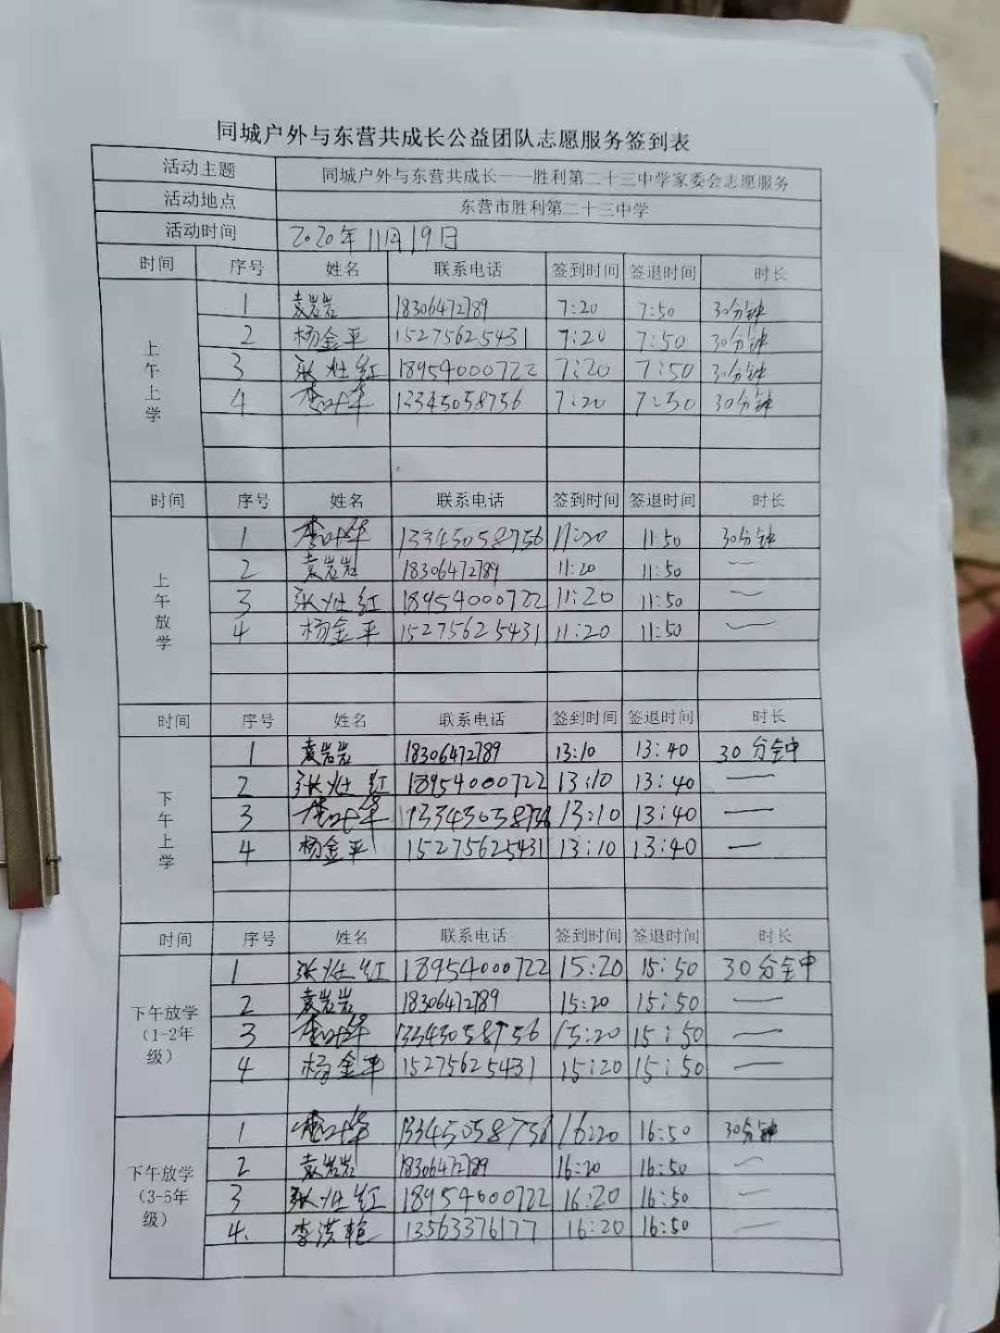 同城户外与东营共成长公益团队志愿服务签到表
活动主题 同城户外与东营共成长——胜利第二十三中学家委会志愿服务
活动地点 东营市胜利第二十三中学
活动时间 2020年11月19日
时间 序号 姓名 联系电话 签到时间 签退时间 时长
上午上学
1 袁岩岩 18306472789 7:20 7:50 30分钟
2 杨金平 15275625431 7:20 7:50 30分钟
3 张灶红 18954000722 7:20 7:50 30分钟
4 13345058756 7:20 7:50 30分钟
时间 序号 姓名 联系电话 签到时间 签退时间 时长
上午放学
1 13345058756 11:20 11:50 30分钟
2 袁岩岩 18306472789 11:20 11:50 —
3 张灶红 18954000722 11:20 11:50 —
4 杨金平 15275625431 11:20 11:50 —
时间 序号 姓名 联系电话 签到时间 签退时间 时长
下午上学
1 袁岩岩 18306472789 13:10 13:40 30分钟
2 张灶红 18954000722 13:10 13:40 —
3 13345058756 13:10 13:40 —
4 杨金平 15275625431 13:10 13:40 —
时间 序号 姓名 联系电话 签到时间 签退时间 时长
下午放学
(1-2年
级)
1 张灶红 18954000722 15:20 15:50 30分钟
2 袁岩岩 18306472789 15:20 15:50 —
3 13345058756 15:20 15:50 —
4 杨金平 15275625431 15:20 15:50 —
下午放学
(3-5年
级)
1 13345058756 16:20 16:50 30分钟
2 袁岩岩 18306472789 16:20 16:50 —
3 张灶红 18954000722 16:20 16:50 —
4. 李洪艳 13563376177 16:20 16:50 —